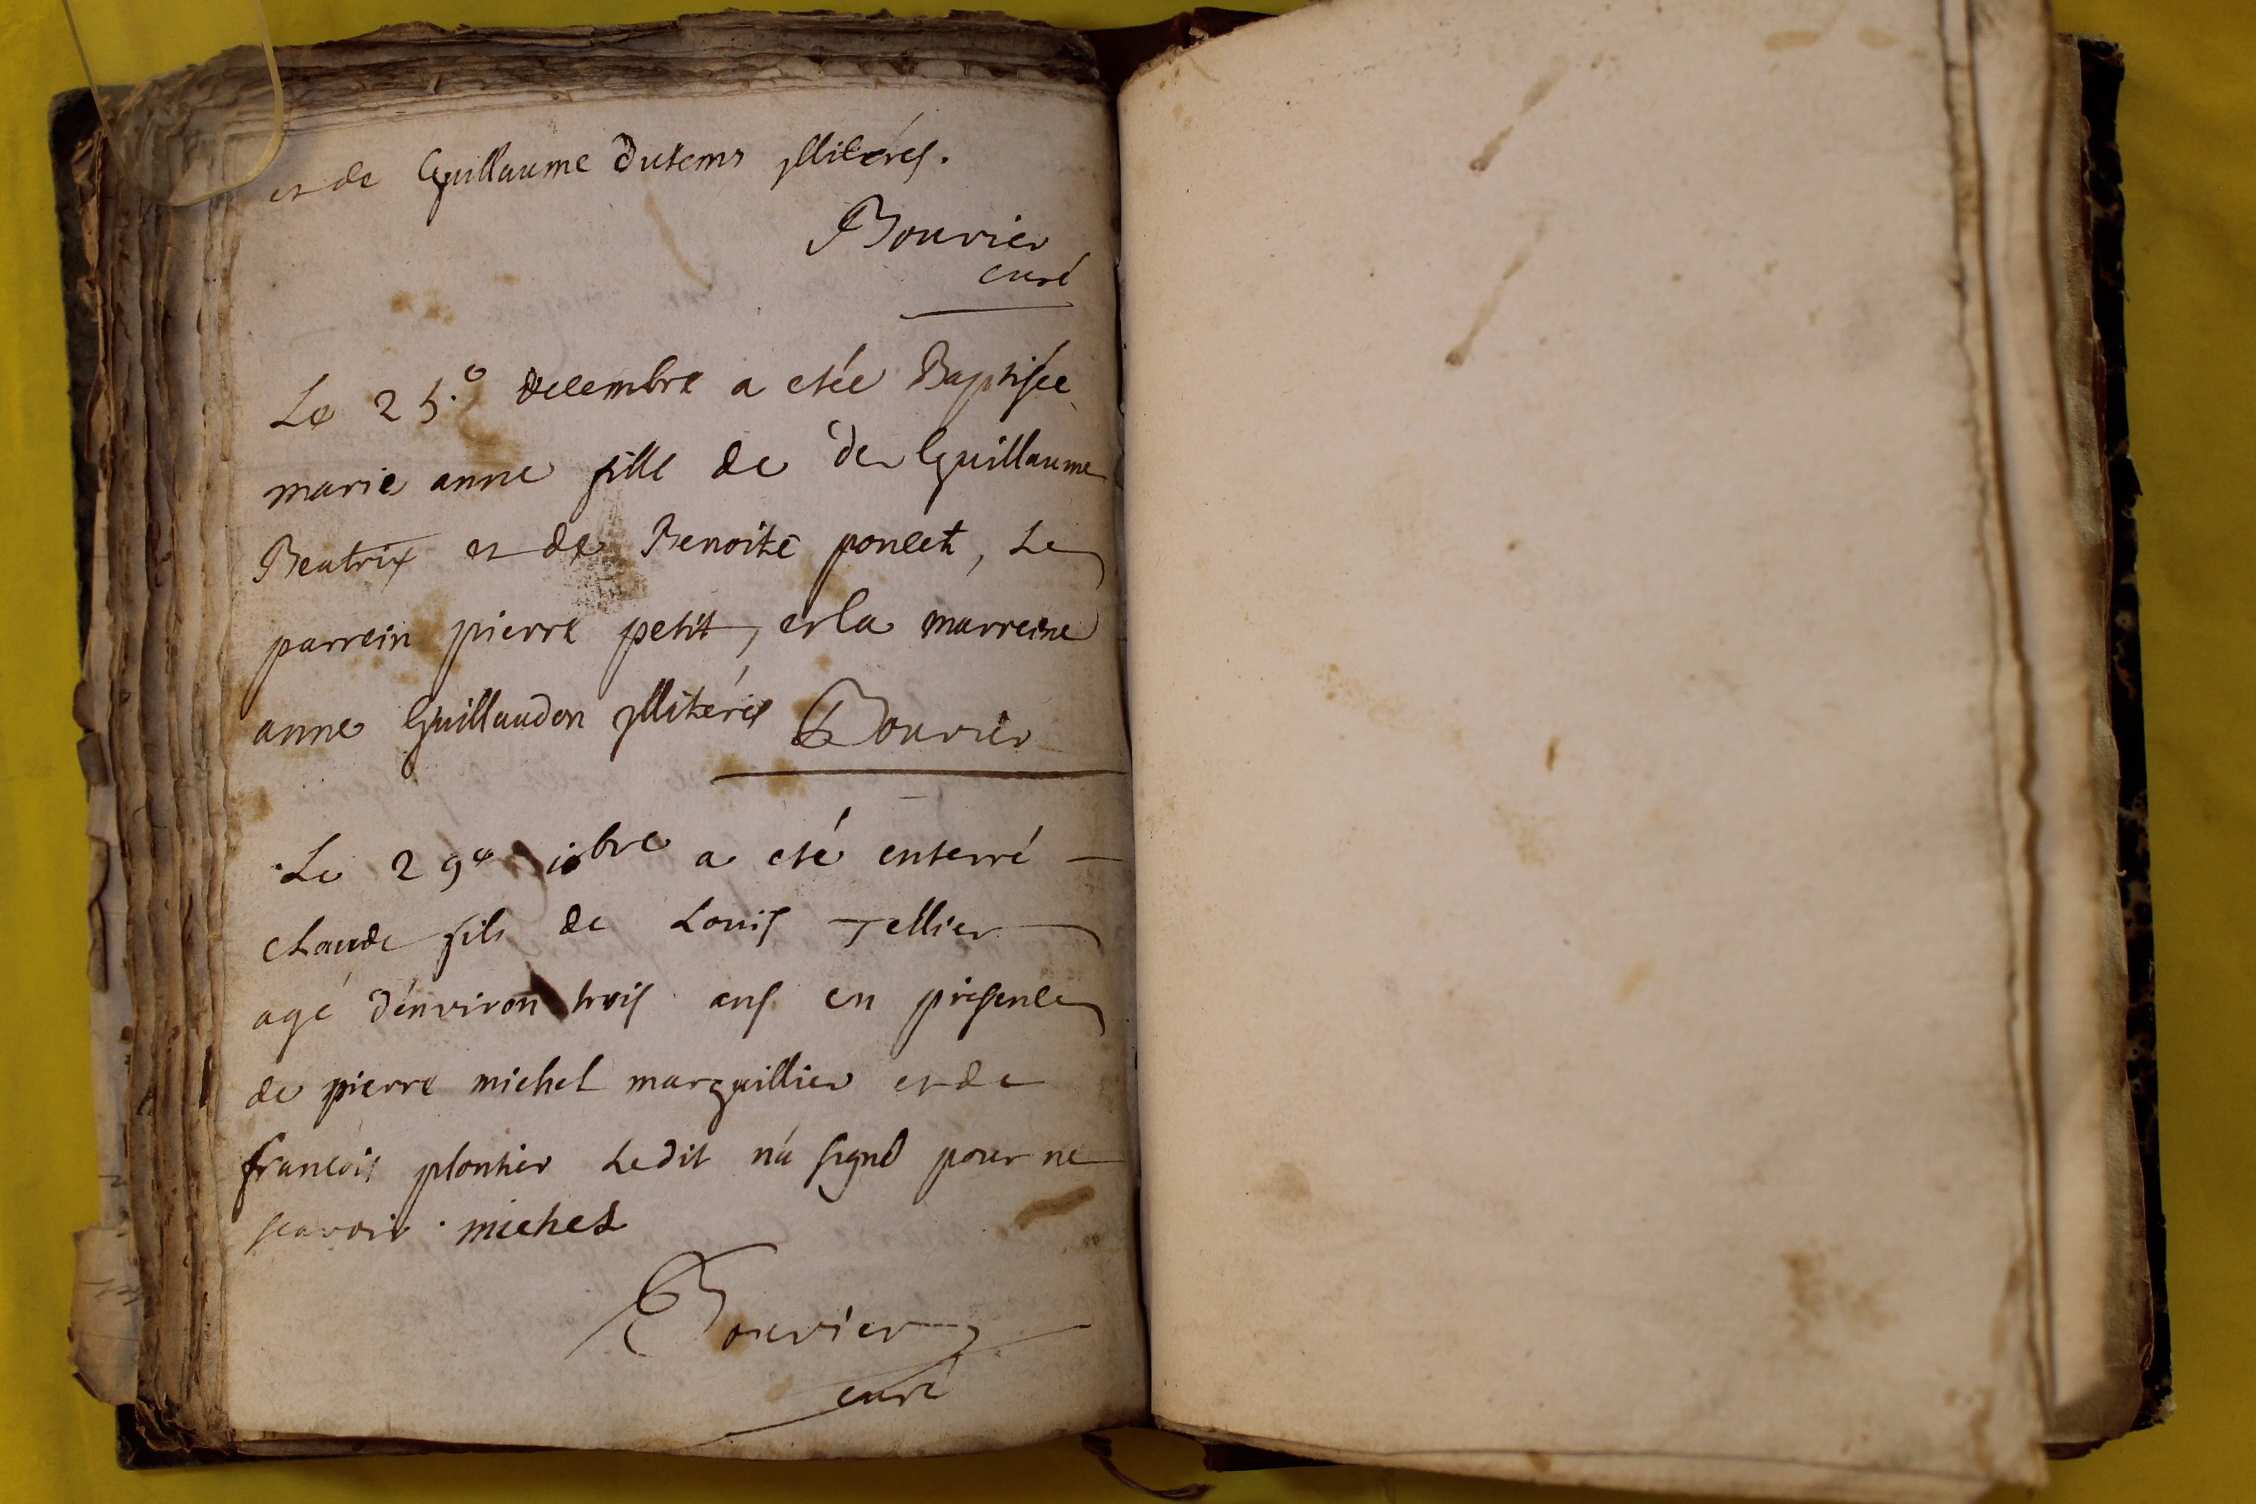 et de Guillaume Dutems yllitérés.
Bouvier
curé
Le 25.e decembre a etée Baptisée
marie anne fille de de Guillaume
Beatrix et de Benoite poncet, Le
parrein pierre petit, et la marreine
anne Guillaudon yllitérés Bouvier
Le 29e xbre a eté enterré
claude fils de Louis Tellier
agé d'environ trois ans en presence
de pierre michel marguillier et de
francois plontier Ledit n'a signé pour ne
scavoir. michel
Bouvier
curé